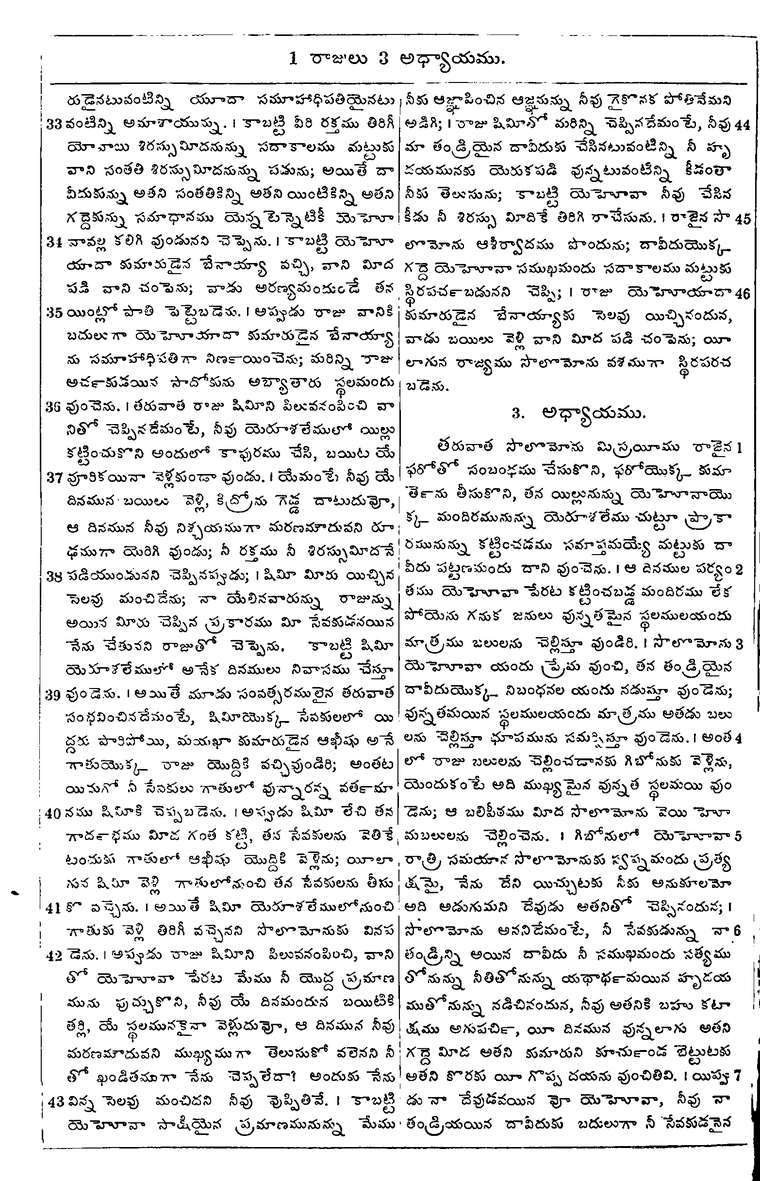 1 రాజులు 3 అధ్యాయము.
రుడైనటువంటిన్ని యూదా సమూహాధిపతియైనటు
33 వంటిన్ని అమాశాయున్ను. । కాబట్టి వీరి రక్తము తిరిగీ
యోవాబు శిరస్సుమీదనున్ను సదాకాలము మట్టుకు
వాని సంతతి శిరస్సుమీదనున్ను పడును; అయితే దా
వీదుకున్ను అతని సంతతికిన్ని అతని యింటికిన్ని అతని
గద్దెకున్ను సమాధానము యెన్నటెన్నెటికీ యెహోు
34 వావల్ల కలిగి వుండునని చెప్పెను. । కాబట్టి యెహోు
యాదా కుమారుడైన బేనాయ్యా వచ్చి, వాని మీద
పడి వాని చంపెను; వాడు అరణ్యమందుండే తన
35 యింట్లో పాతి పెట్టబడెను. । అప్పుడు రాజు వానికి
బదులుగా యెహోయాదా కుమారుడైన బేనాయ్యా
ను సమూహాధిపతిగా నిర్ణయించెను; మరిన్ని రాజు
అర్చకుడయిన సాదోకును అబ్యాతారు స్థలమందు
36 వుంచెను. । తరువాత రాజు షిమీని పిలువనంపించి వా
నితో చెప్పినదేమంటే, నీవు యెరూశలేములో యిల్లు
కట్టించుకొని అందులో కాపురము చేసి, బయిట యే
37 వూరికయినా వెళ్లకుండా వుండు. । యేమంటే నీవు యే
దినమున బయిలు వెళ్లి, కిద్రోను గెడ్డ దాటుదువో,
ఆ దినమున నీవు నిశ్చయముగా మరణమౌదువని రూ
ఢముగా యెరిగి వుండు; నీ రక్తము నీ శిరస్సుమీదనే
38 పడియుండునని చెప్పినప్పుడు; । షిమీ మీరు యిచ్చిన
సెలవు మంచిదేను; నా యేలినవారున్ను రాజున్ను
అయిన మీరు చెప్పిన ప్రకారము మీ సేవకుడనయిన
నేను చేతునని రాజుతో చెప్పెను. కాబట్టి షిమీ
యెరూశలేములో అనేక దినములు నివాసము చేస్తూ
39 వుండెను. । అయితే మూడు సంవత్సరములైన తరువాత
సంభవించినదేమంటే, షిమీయొక్క సేవకులలో యి
ద్దరు పారిపోయి, మయఖా కుమారుడైన ఆఖీషు అనే
గాతుయొక్క రాజు యొద్దికి వచ్చివుండిరి; అంతట
యిదుగో నీ సేవకులు గాతులో వున్నారన్న వర్తమా
40 నము షిమీకి చెప్పబడెను. । అప్పుడు షిమీ లేచి తన
గాడర్ధభము మీద గంత కట్టి, తన సేవకులను వెతికే
టందుకు గాతులో ఆఖీషు యొద్దికి వెళ్లెను; యీలా
గున షిమీ వెళ్లి గాతులోనుంచి తన సేవకులను తీసు
41 కొ వచ్చెను. । అయితే షిమీ యెరూశలేములోనుంచి
గాతుకు వెళ్లి తిరిగీ వచ్చెనని సొలొమోనుకు వినప
42 డెను. । అప్పుడు రాజు షిమీని పిలువనంపించి, వాని
తో యెహోవా పేరట మేము నీ యొద్ద ప్రమాణ
మును పుచ్చుకొని, నీవు యే దినమందున బయిటికి
తర్లి, యే స్థలమునకైనా వెళ్లుదువో, ఆ దినమున నీవు
మరణమౌదువని ముఖ్యముగా తెలుసుకో వలెనని నీ
తో ఖండితముగా నేను చెప్పలేదా? అందుకు నేను
43 విన్న సెలవు మంచిదని నీవు వొప్పితివే. । కాబట్టి
యెహోవా సాక్షియైన ప్రమాణమునున్ను మేము
నీకు ఆజ్ఞాపించిన ఆజ్ఞనున్ను నీవు గైకొనక పోతివేమని
అడిగి; । రాజు షిమీతో మరిన్ని చెప్పినదేమంటే, నీవు 44
మా తండ్రియైన దావీదుకు చేసినటువంటిన్ని నీ హృ
దయమునకు యెరుకపడి వున్నటువంటిన్ని కీడంతా
నీకు తెలుసును; కాబట్టి యెహోవా నీవు చేసిన
కీడు నీ శిరస్సు మీదికే తిరిగి రాచేసును. । రాజైన సొ 45
లొమోను ఆశీర్వాదము పొందును; దావీదుయొక్క
గద్దె యెహోవా సముఖమందు సదాకాలము మట్టుకు
స్థిరపర్చబడునని చెప్పి; । రాజు యెహోయాదా 46
కుమారుడైన బేనాయ్యాకు సెలవు యిచ్చినందున,
వాడు బయిలు వెళ్లి వాని మీద పడి చంపెను; యీ
లాగున రాజ్యము సొలొమోను వశముగా స్థిరపరచ
బడెను.
3. అధ్యాయము.
తరువాత సొలొమోను మిస్రయీము రాజైన 1
ఫరోతో సంబంధము చేసుకొని, ఫరోయొక్క కుమా
ర్తెను తీసుకొని, తన యిల్లునున్ను యెహోవాయొ
క్క మందిరమునున్ను యెరూశలేము చుట్టూ ప్రాకా
రమునున్ను కట్టించడము సమాప్తమయ్యే మట్టుకు దా
వీదు పట్టణమందు దాని వుంచెను. । ఆ దినముల పర్యం 2
తము యెహోవా పేరట కట్టించబడ్డ మందిరము లేక
పోయెను గనుక జనులు వున్నతమైన స్థలములయందు
మాత్రము బలులను చెల్లిస్తూ వుండిరి. । సొలొమోను 3
యెహోవా యందు ప్రేమ వుంచి, తన తండ్రియైన
దావీదుయొక్క నిబంధనల యందు నడుస్తూ వుండెను;
వున్నతమయిన స్థలములయందు మాత్రము అతడు బలు
లను చెల్లిస్తూ ధూపమును సమర్పిస్తూ వుండెను. । అంత 4
లో రాజు బలులను చెల్లించడానకు గిబోనుకు వెళ్లెను,
యెందుకంటే అది ముఖ్యమైన వున్నత స్థలమయి వుం
డెను; ఆ బలిపీఠము మీద సొలొమోను వెయి హో
మబలులను చెల్లించెను. । గిబోనులో యెహోవా 5
రాత్రి సమయాన సొలొమోనుకు స్వప్నమందు ప్రత్య
క్షమై, నేను దేని యిచ్చుటకు నీకు అనుకూలమో
అది అడుగుమని దేవుడు అతనితో చెప్పినందున; ।
సొలొమోను అననిదేమంటే, నీ సేవకుడున్ను నా 6
తండ్రిన్ని అయిన దావీదు నీ సముఖమందు సత్యము
తోనున్ను నీతితోనున్ను యథార్థమయిన హృదయ
ముతోనున్ను నడిచినందున, నీవు అతనికి బహు కటా
క్షము అగుపర్చి, యీ దినమున వున్నలాగు అతని
గద్దె మీద అతని కుమారుని కూర్చుండ బెట్టుటకు
అతని కొరకు యీ గొప్ప దయను వుంచితివి. । యిప్పు 7
డు నా దేవుడవయిన వో యెహోవా, నీవు నా
తండ్రియయిన దావీదుకు బదులుగా నీ సేవకుడనైన